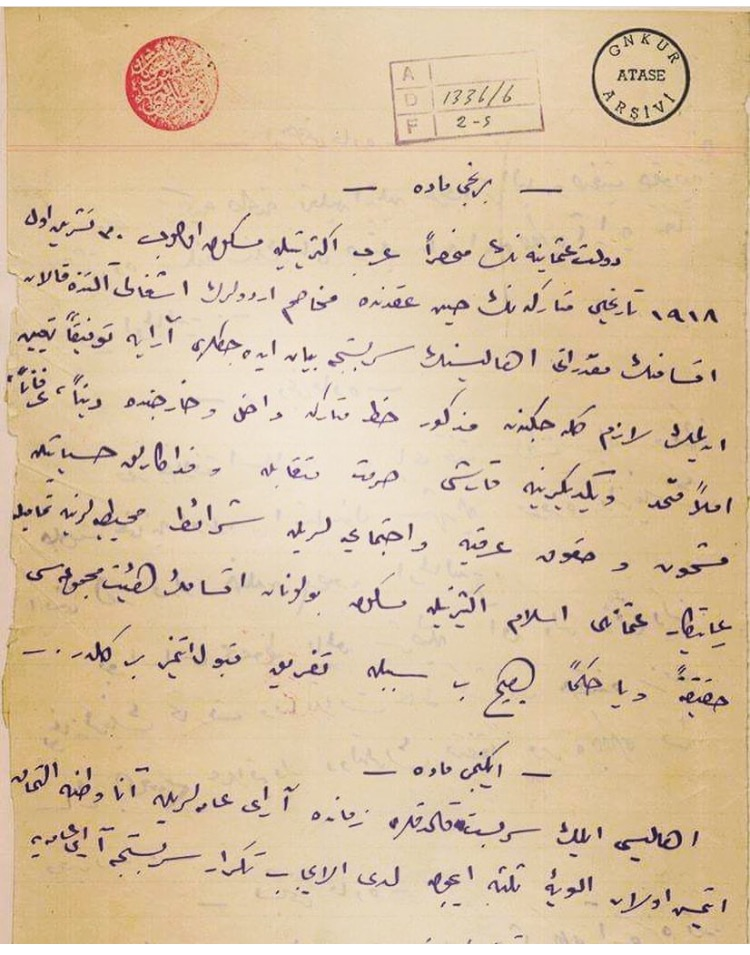 GNKUR
ATASE
ARŞİVİ
A
D 1336/6
F 2-5
— برنجی ماده —
دولت عثمانیه نك منحصراً عرب اكثریتیله مسكون اولوب ٣٠ تشرین اول
١٩١٨ تاریخلی متاركه نك حین عقدنده مخاصم اردولرك اشغالی آلتنده قالان
اقسامنك مقدراتی اهالیسنك سربستجه بیان ایده جكلری آرایه توفیقاً تعیین
ایدلمك لازم كله جكندن مذكور خط متاركه داخل و خارجنده دیناً، عرفاناً،
املاً متحد و یكدیگرینه قارشی حرمت متقابله و فداكارلق حسیاتیله
مشحون و حقوق عرقیه و اجتماعیه لریله شرائط محیطیه لرینه تمامیله
رعایتكار عثمانلی اسلام اكثریتیله مسكون بولونان اقسامك هیئت مجموعه سی
حقیقةً ویا حكماً هیچ بر سببله تفریق قبول ایتمز بر كلدر. —
— ایكنجی ماده —
اهالیسی ایلك سربست قالدقلری زمانده آرای عامه لریله آنا وطنه التحاق
ایتمش اولان الویهٔ ثلثه ایچون لدی الایجاب تكرار سربستجه آرای عامه یه